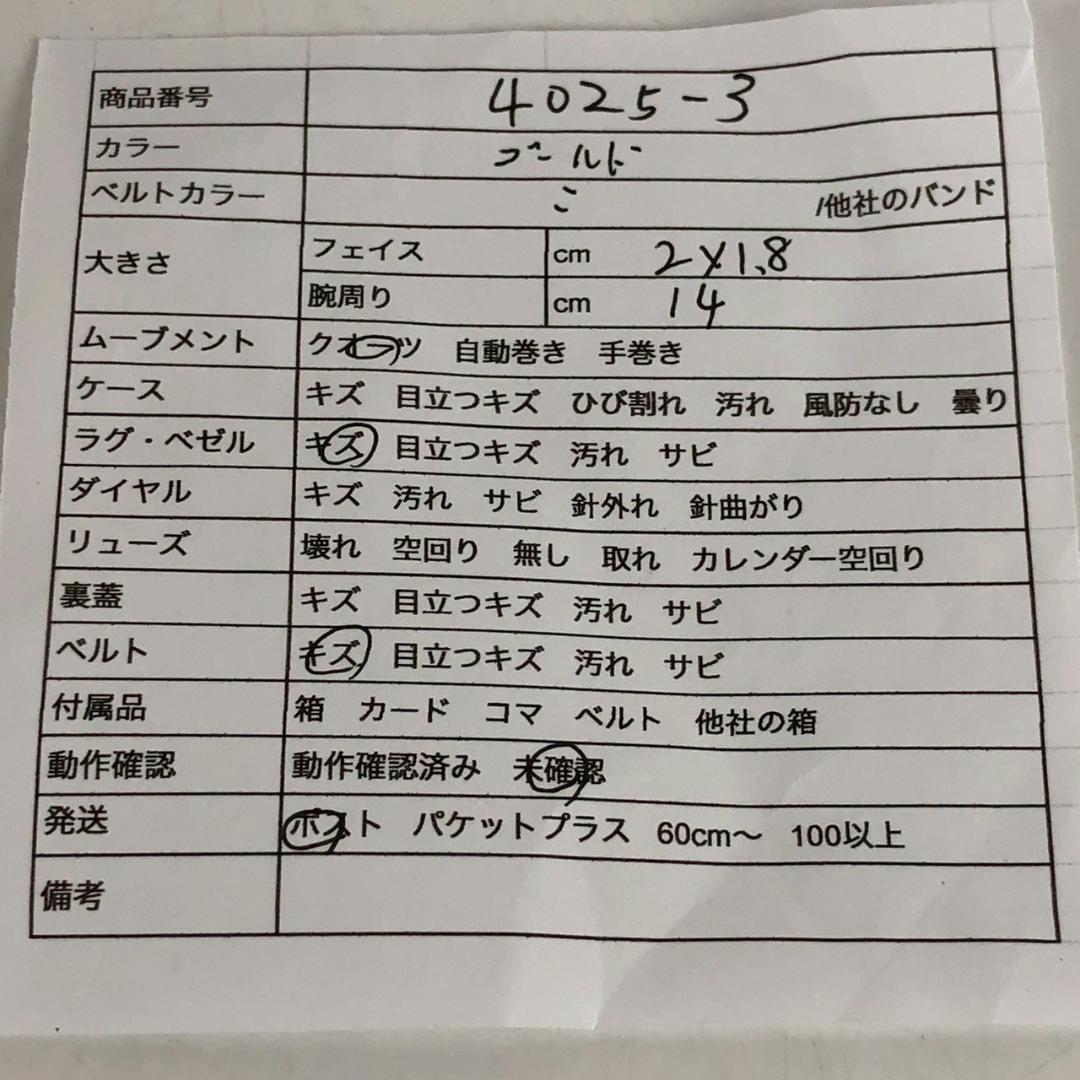 商品番号 4025-3
カラー ゴールド
ベルトカラー 〃 /他社のバンド
大きさ フェイス cm 2×1.8
腕周り cm 14
ムーブメント クオーツ 自動巻き 手巻き
ケース キズ 目立つキズ ひび割れ 汚れ 風防なし 曇り
ラグ・ベゼル キズ 目立つキズ 汚れ サビ
ダイヤル キズ 汚れ サビ 針外れ 針曲がり
リューズ 壊れ 空回り 無し 取れ カレンダー空回り
裏蓋 キズ 目立つキズ 汚れ サビ
ベルト キズ 目立つキズ 汚れ サビ
付属品 箱 カード コマ ベルト 他社の箱
動作確認 動作確認済み 未確認
発送 ポスト パケットプラス 60cm〜 100以上
備考